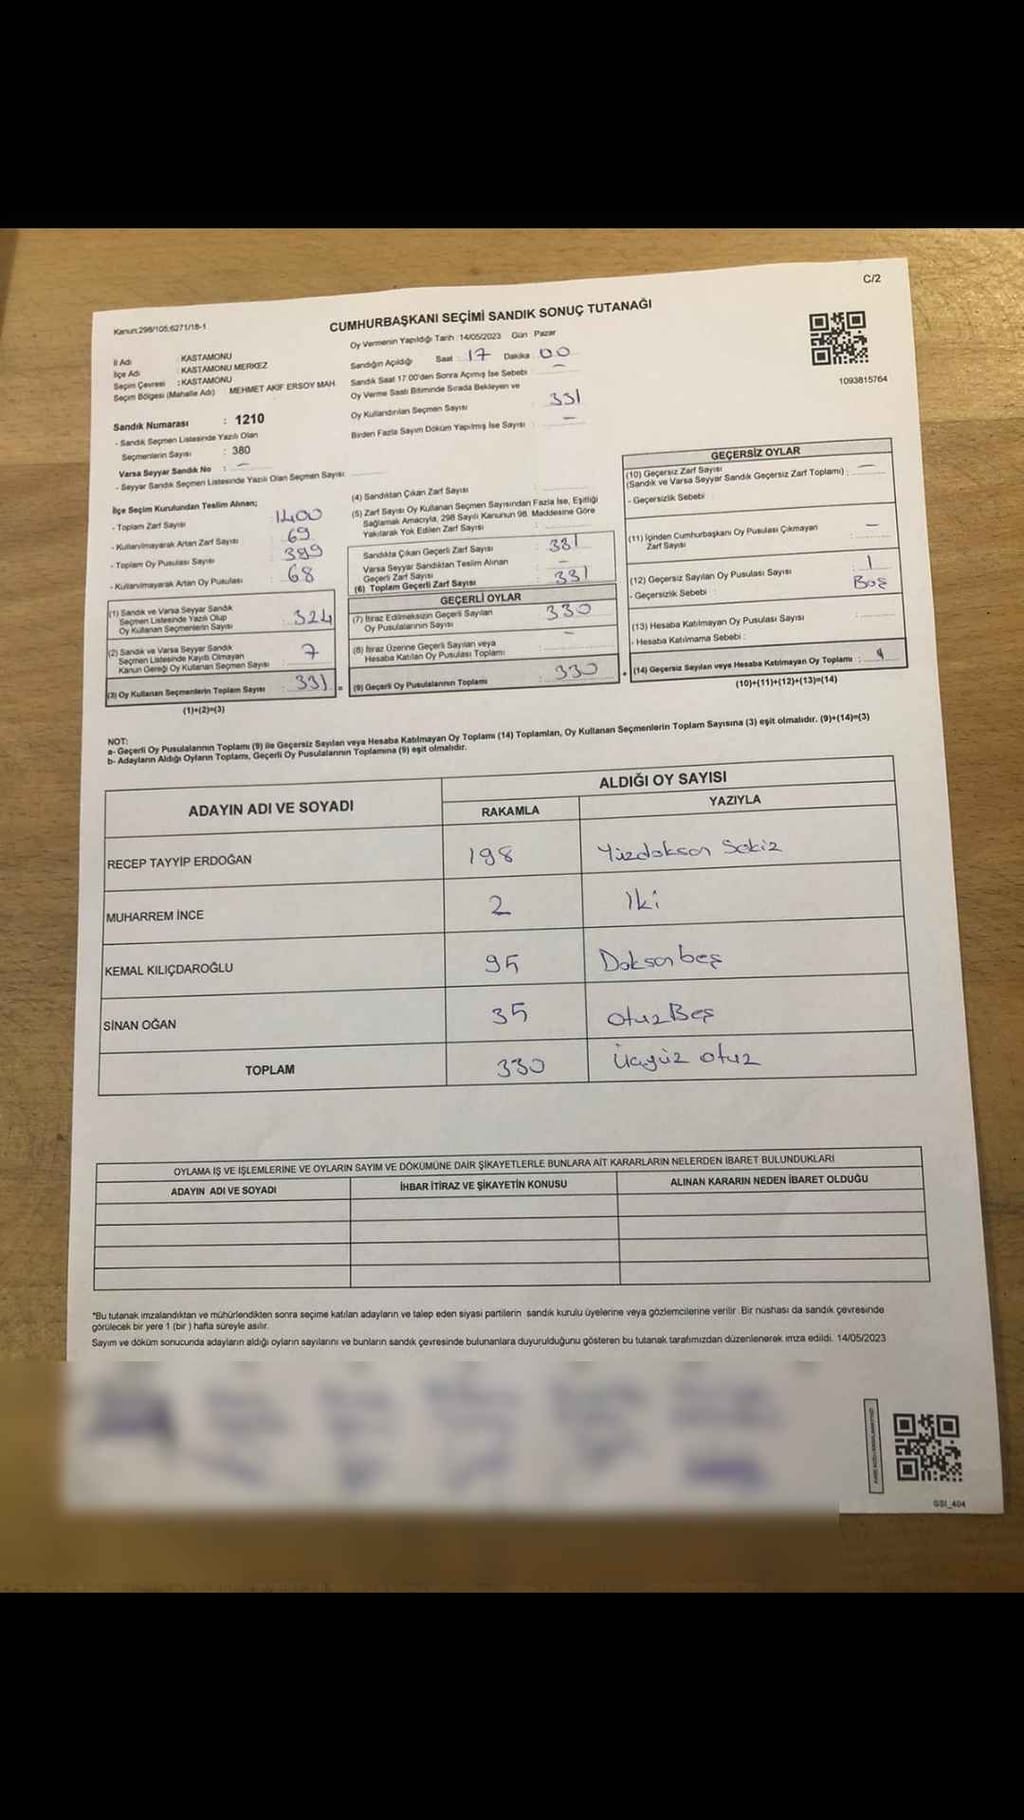 C/2
Kanun:298/105;6271/18-1
CUMHURBAŞKANI SEÇİMİ SANDIK SONUÇ TUTANAĞI
İl Adı : KASTAMONU
İlçe Adı : KASTAMONU MERKEZ
Seçim Çevresi : KASTAMONU
Seçim Bölgesi (Mahalle Adı) MEHMET AKİF ERSOY MAH.
Sandık Numarası : 1210
- Sandık Seçmen Listesinde Yazılı Olan
Seçmenlerin Sayısı : 380
Varsa Seyyar Sandık No : –
- Seyyar Sandık Seçmen Listesinde Yazılı Olan Seçmen Sayısı :
Oy Vermenin Yapıldığı Tarih : 14/05/2023 Gün : Pazar
Sandığın Açıldığı Saat : 17 Dakika : 00
Sandık Saat 17:00'den Sonra Açımış İse Sebebi : –
Oy Verme Saati Bitiminde Sırada Bekleyen ve
Oy Kullandırılan Seçmen Sayısı : 331
Birden Fazla Sayım Döküm Yapılmış İse Sayısı : –
1093815764
İlçe Seçim Kurulundan Teslim Alınan;
- Toplam Zarf Sayısı : 1400
- Kullanılmayarak Artan Zarf Sayısı : 69
- Toplam Oy Pusulası Sayısı : 399
- Kullanılmayarak Artan Oy Pusulası : 68
(1) Sandık ve Varsa Seyyar Sandık
Seçmen Listesinde Yazılı Olup
Oy Kullanan Seçmenlerin Sayısı : 324
(2) Sandık ve Varsa Seyyar Sandık
Seçmen Listesinde Kayıtlı Olmayan
Kanun Gereği Oy Kullanan Seçmen Sayısı : 7
(3) Oy Kullanan Seçmenlerin Toplam Sayısı : 331 =
(1)+(2)=(3)
(4) Sandıktan Çıkan Zarf Sayısı :
(5) Zarf Sayısı Oy Kullanan Seçmen Sayısından Fazla İse, Eşitliği
Sağlamak Amacıyla, 298 Sayılı Kanunun 98. Maddesine Göre
Yakılarak Yok Edilen Zarf Sayısı :
Sandıkta Çıkan Geçerli Zarf Sayısı : 331
Varsa Seyyar Sandıktan Teslim Alınan
Geçerli Zarf Sayısı : –
(6) Toplam Geçerli Zarf Sayısı : 331
GEÇERLİ OYLAR
(7) İtiraz Edilmeksizin Geçerli Sayılan
Oy Pusulalarının Sayısı : 330
(8) İtiraz Üzerine Geçerli Sayılan veya
Hesaba Katılan Oy Pusulası Toplamı : –
(9) Geçerli Oy Pusulalarının Toplamı : 330 +
GEÇERSİZ OYLAR
(10) Geçersiz Zarf Sayısı
(Sandık ve Varsa Seyyar Sandık Geçersiz Zarf Toplamı) : –
- Geçersizlik Sebebi :
(11) İçinden Cumhurbaşkanı Oy Pusulası Çıkmayan
Zarf Sayısı : –
(12) Geçersiz Sayılan Oy Pusulası Sayısı : 1
- Geçersizlik Sebebi : Boş
(13) Hesaba Katılmayan Oy Pusulası Sayısı :
- Hesaba Katılmama Sebebi :
(14) Geçersiz Sayılan veya Hesaba Katılmayan Oy Toplamı : 1
(10)+(11)+(12)+(13)=(14)
NOT:
a- Geçerli Oy Pusulalarının Toplamı (9) ile Geçersiz Sayılan veya Hesaba Katılmayan Oy Toplamı (14) Toplamları, Oy Kullanan Seçmenlerin Toplam Sayısına (3) eşit olmalıdır. (9)+(14)=(3)
b- Adayların Aldığı Oyların Toplamı, Geçerli Oy Pusulalarının Toplamına (9) eşit olmalıdır.
ADAYIN ADI VE SOYADI ALDIĞI OY SAYISI
RAKAMLA YAZIYLA
RECEP TAYYİP ERDOĞAN 198 Yüzdoksan Sekiz
MUHARREM İNCE 2 İki
KEMAL KILIÇDAROĞLU 95 Doksanbeş
SİNAN OĞAN 35 OtuzBeş
TOPLAM 330 Üçyüz otuz
OYLAMA İŞ VE İŞLEMLERİNE VE OYLARIN SAYIM VE DÖKÜMÜNE DAİR ŞİKAYETLERLE BUNLARA AİT KARARLARIN NELERDEN İBARET BULUNDUKLARI
ADAYIN ADI VE SOYADI İHBAR İTİRAZ VE ŞİKAYETİN KONUSU ALINAN KARARIN NEDEN İBARET OLDUĞU
*Bu tutanak imzalandıktan ve mühürlendikten sonra seçime katılan adayların ve talep eden siyasi partilerin sandık kurulu üyelerine veya gözlemcilerine verilir. Bir nüshası da sandık çevresinde
görülecek bir yere 1 (bir ) hafta süreyle asılır.
Sayım ve döküm sonucunda adayların aldığı oyların sayılarını ve bunların sandık çevresinde bulunanlara duyurulduğunu gösteren bu tutanak tarafımızdan düzenlenerek imza edildi. 14/05/2023
GSI_404